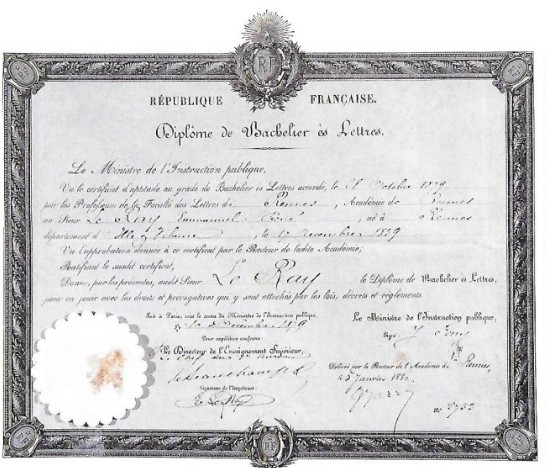 RF
RÉPUBLIQUE FRANÇAISE.
Diplôme de Bachelier ès Lettres.
Le Ministre de l'Instruction publique,
Vu le certificat d'aptitude au grade de Bachelier ès Lettres accordé, le 28 Octobre 1879
par les Professeurs de la Faculté des Lettres de Rennes, Académie de Rennes
au Sieur Le Ray Emmanuel né à Rennes
département d'Ille & Vilaine, le 1859
Vu l'approbation donnée à ce certificat par le Recteur de ladite Académie;
Ratifiant le susdit certificat,
Donne, par les présentes, audit Sieur Le Ray le Diplôme de Bachelier ès Lettres,
pour en jouir avec les droits et prérogatives qui y sont attachés par les lois, décrets et règlements.
Fait à Paris, sous le sceau du Ministère de l'Instruction publique,
Le 10 Décembre 1879
Le Ministre de l'Instruction publique,
Signé
Pour expédition conforme:
Le Directeur de l'Enseignement Supérieur,
Délivré par le Recteur de l'Académie de Rennes
le 5 Janvier 1880
Signature de l'Impétrant:
RF